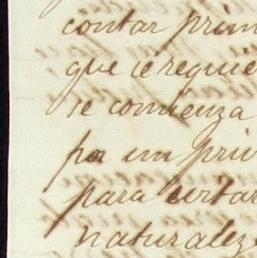 contar prim
que ce requie
se comienza
por un prin
para evitar
naturalez